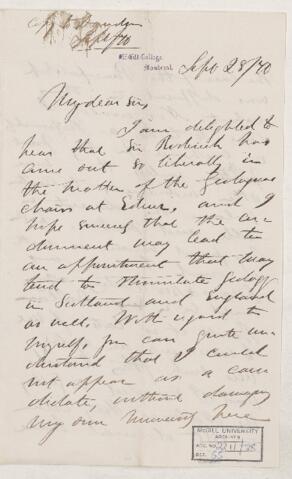 Sept/70
McGill College,
Montreal,
Sept 28/70
My dear Sir,
I am delighted to
hear that Sir Roderick has
come out so liberally in
the matter of the Geological
chair at Edinr, and I
hope sincerely that the en-
dowment may lead to
an appointment that may
tend to stimulate Geology
in Scotland and England
as well. With regard to
myself, you can quite un-
derstand that I could
not appear as a can-
didate, without damaging
my own university here
McGILL UNIVERSITY
ARCHIVES
ACC. NO.
REF.